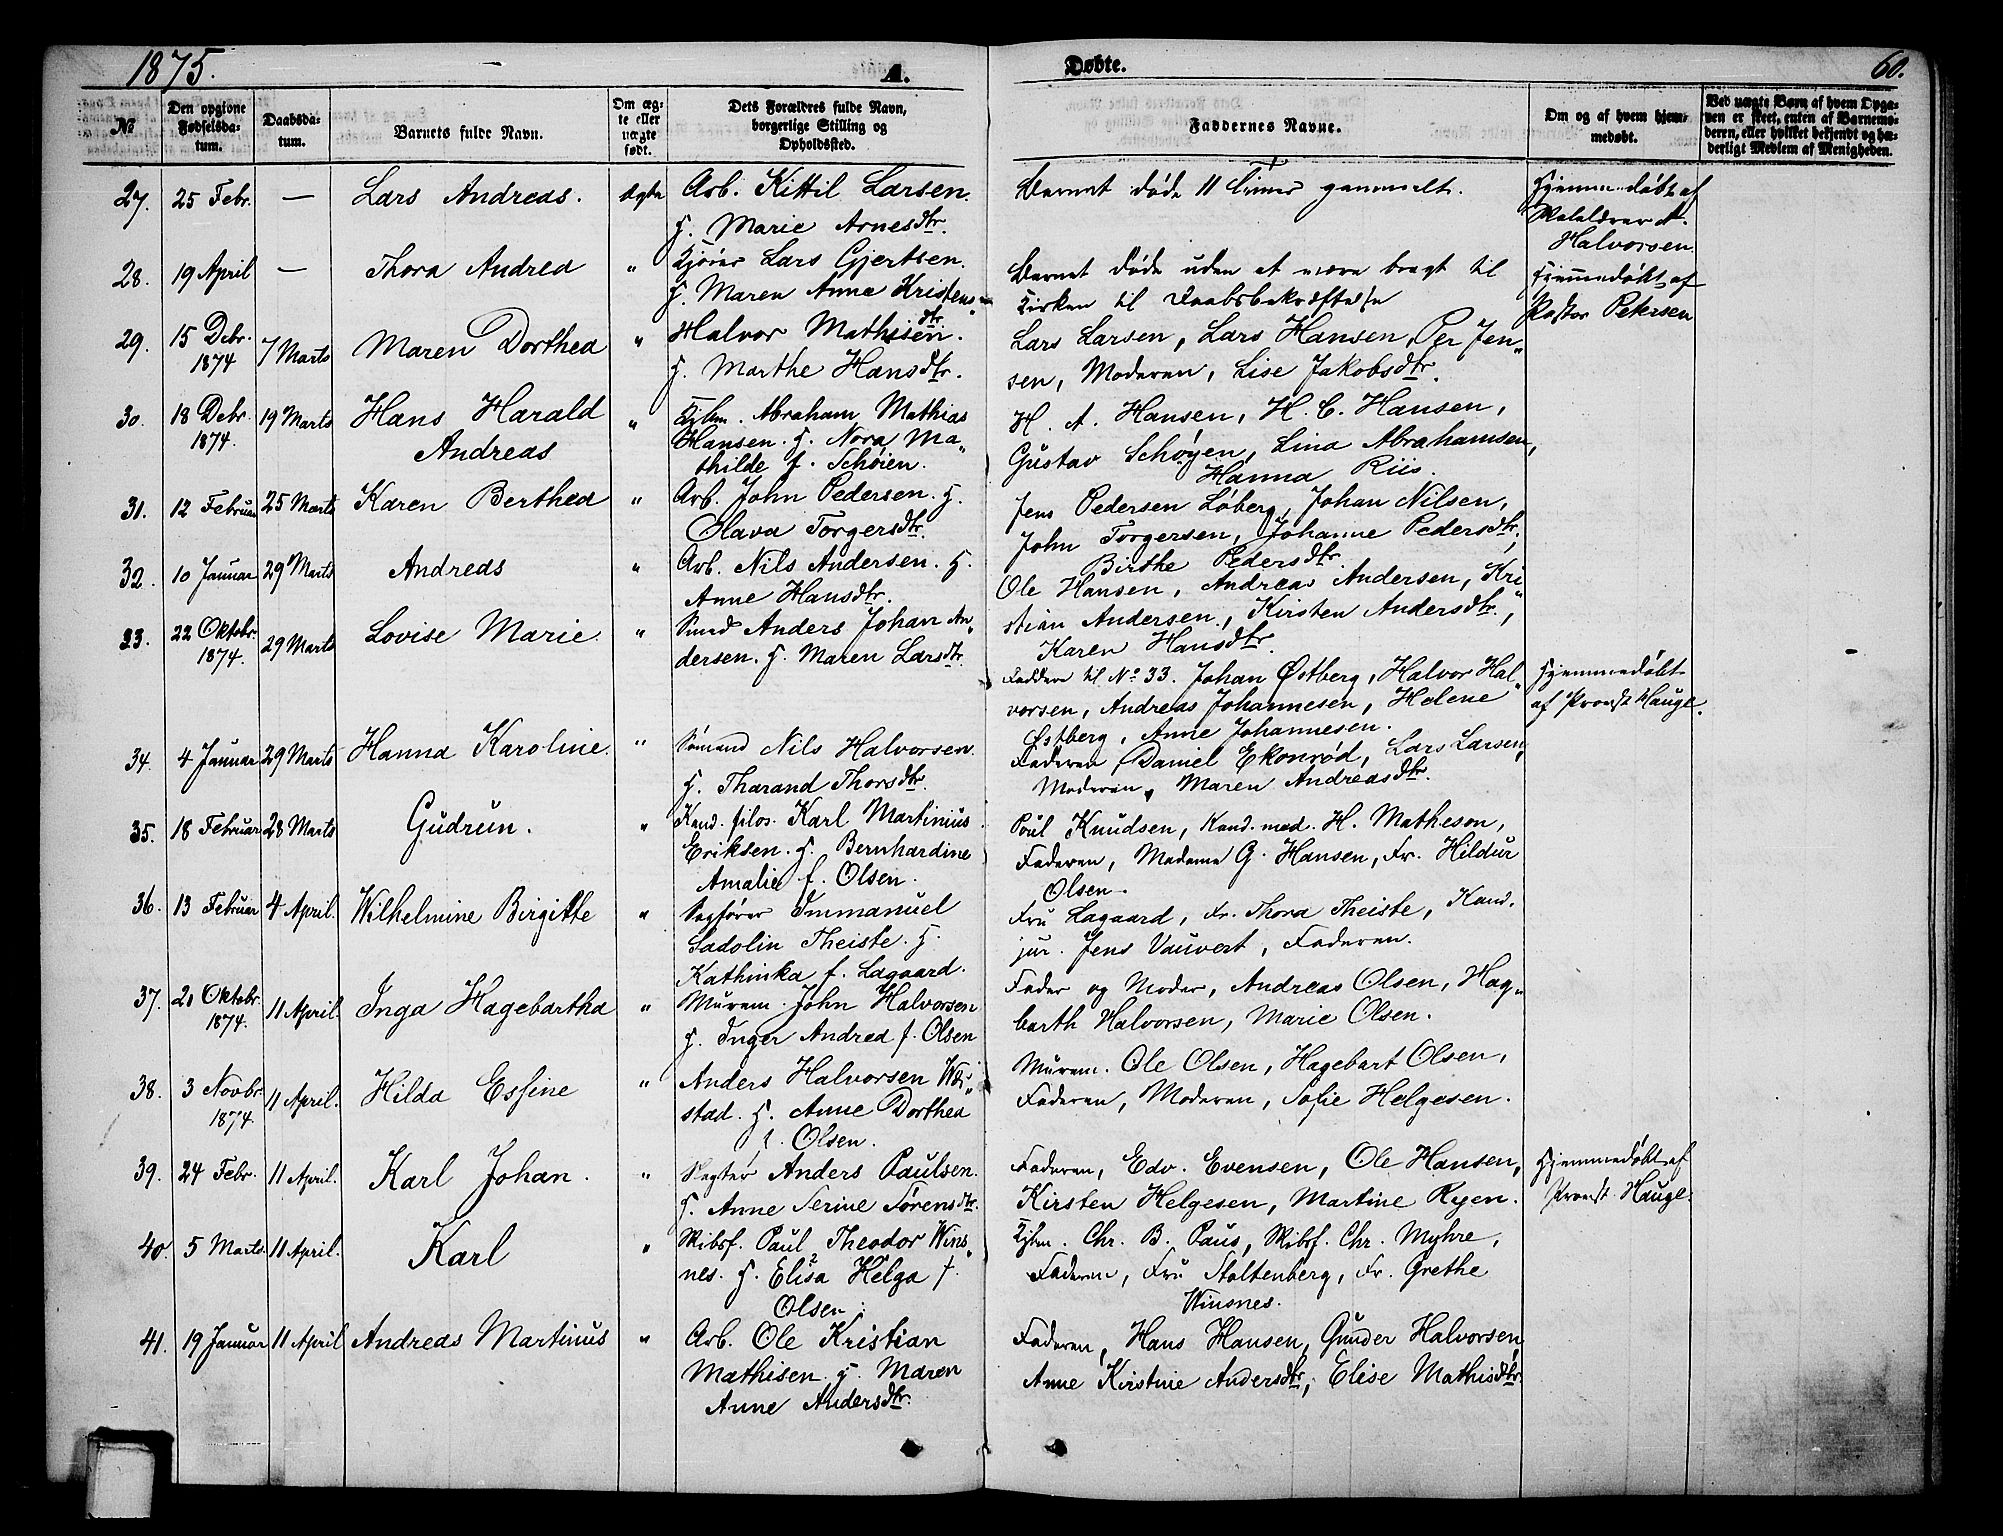 1875.
A.
Døbte.
60.
№
Den opgivne Fødselsdatum.
Daabsdatum.
Barnets fulde Navn.
Om ægte eller uægte født.
Dets Forældres fulde Navn, borgerlige Stilling og Opholdssted.
Faddernes Navne.
Om og af hvem hjemmedøbt.
Ved uægte Børn af hvem Opgaven er skeet, enten af Barnemoderen, eller hvilket bekjendt og hæderligt Medlem af Menigheden.
27. 25 Febr. — Lars Andreas. ægte Arb. Kittil Larsen. Barnet døde 11 Timer gammelt. Hjemmedøbt af
H. Marie Arnesdtr. A.
Halvorsen.
28. 19 April — Thora Andrea " Lars Gjertsen. Barnet døde uden at være bragt til Hjemmedøbt af
H. Maren Anne Kristens- Kirken til Daabsbekræftelse Pastor Petersen
dtr.
29. 15 Debr. 7 Marts Maren Dorthea " Halvor Mathisen. Lars Larsen, Lars Hansen, Per Jen-
1874 H. Marthe Hansdtr. sen, Moderen, Lise Jakobsdtr.
30. 18 Debr. 19 Marts Hans Harald " Kjbm. Abraham Mathias H. A. Hansen, H. C. Hansen,
1874. Andreas Hansen. H. Nora Ma- Gustav Schøyen, Lina Abrahamsen,
thilde f. Schøien. Hanna Riis.
31. 12 Februar 25 Marts Karen Berthea " Arb. John Pedersen. H. Jens Pedersen Løberg, Johan Nilsen,
Olava Torgersdtr. John Torgersen, Johanne Pedersdtr.,
Birthe Pedersdtr.
32. 10 Januar 29 Marts Andreas " Arb. Nils Andersen. H. Ole Hansen, Andreas Andersen, Kri-
Anne Hansdtr. stian Andersen, Kirsten Andersdtr.,
Karen Hansdtr.
33. 22 Oktobr. 29 Marts Lovise Marie " Smed Anders Johan An-
1874. dersen. H. Maren Larsdtr.
Faddere til No 33. Johan Østberg, Halvor Hal- Hjemmedøbt
vorsen, Andreas Johannesen, Helene af Provst Hauge.
Østberg, Anne Johannesen.
34. 4 Januar 29 Marts Hanna Karoline. " Sømand Nils Halvorsen Faderen, Daniel Ekonrød, Lars Larsen,
H. Tharand Thorsdtr. Moderen, Maren Andreasdtr.
35. 18 Februar 28 Marts Gudrun. " Kand. filos. Karl Martinius Poul Knudsen, Kand. med. H. Matheson,
Eriksen. H. Bernhardine Faderen, Madame G. Hansen, Fr. Hildur
Amalie f. Olsen. Olsen.
36. 13 Februar 4 April. Wilhelmine Birgitte " Sagfører Immanuel Fru Lagaard, Fr. Thora Theiste, Kand.
Sadolin Theiste. H. jur. Jens Vauvert, Faderen.
Kathinka f. Lagaard.
37. 21 Oktobr. 11 April. Inga Hagebartha " Murem. John Halvorsen Fader og Moder, Andreas Olsen, Hag-
1874. H. Inger Andrea f. Olsen barth Halvorsen, Marie Olsen.
38. 3 Novbr. 11 April. Hilda Essine " Anders Halvorsen Murem. Ole Olsen, Hagebart Olsen,
1874. stad. H. Anne Dorthea Faderen, Moderen, Sofie Helgesen.
f. Olsen.
39. 24 Febr. 11 April. Karl Johan. " Slagter Anders Paulsen. Faderen, Edv. Evensen, Ole Hansen, Hjemmedøbt af
H. Anne Serine Sørensdtr. Kirsten Helgesen, Martine Ryen. Provst Hauge.
40. 5 Marts 11 April. Karl " Skibsf. Paul Theodor Wins- Kjbm. Chr. B. Paus, Skibsf. Chr. Myhre,
nes. H. Elisa Helga f. Faderen, Fru Stoltenberg, Fr. Grethe
Olsen. Winsnes.
41. 19 Januar 11 April Andreas Martinus " Arb. Ole Kristian Faderen, Hans Hansen, Gunder Halvorsen,
Mathisen. H. Maren Anne Kirstine Andersdtr., Elise Mathisdtr.
Anne Andersdtr.